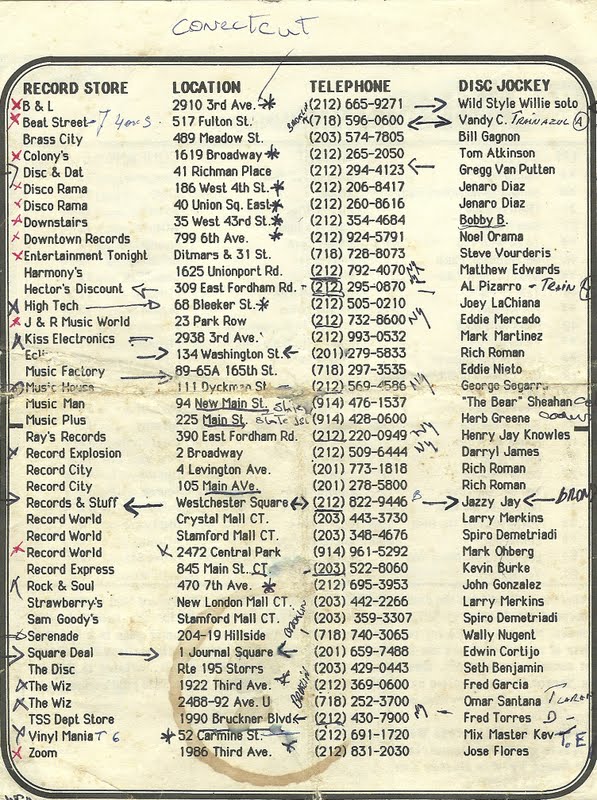 Conectcut
RECORD STORE LOCATION TELEPHONE DISC JOCKEY
B & L 2910 3rd Ave. * (212) 665-9271 Wild Style Willie soto
Beat Street 517 Fulton St. (718) 596-0600 Vandy C. Train A
Brass City 489 Meadow St. (203) 574-7805 Bill Gagnon
Colony's 1619 Broadway * (212) 265-2050 Tom Atkinson
Disc & Dat 41 Richman Place (212) 294-4123 Gregg Van Putten
Disco Rama 186 West 4th St. * (212) 206-8417 Jenaro Diaz
Disco Rama 40 Union Sq. East * (212) 260-8616 Jenaro Diaz
Downstairs 35 West 43rd St. * (212) 354-4684 Bobby B.
Downtown Records 799 6th Ave. * (212) 924-5791 Noel Orama
Entertainment Tonight Ditmars & 31 St. (718) 728-8073 Steve Vourderis
Harmony's 1625 Unionport Rd. (212) 792-4070 NY Matthew Edwards
Hector's Discount 309 East Fordham Rd. - (212) 295-0870 AL Pizarro - Train
High Tech 68 Bleeker St. * (212) 505-0210 Joey LaChiana
J & R Music World 23 Park Row (212) 732-8600 NY Eddie Mercado
Kiss Electronics 2938 3rd Ave. (212) 993-0532 Mark Martinez
134 Washington St. (201) 279-5833 Rich Roman
Music Factory 89-65A 165th St. (718) 297-3535 Eddie Nieto
Music House 111 Dyckman St. (212) 569-4586 NY George Segarra
Music Man 94 New Main St. (914) 476-1537 "The Bear" Sheahan
Music Plus 225 Main St. (914) 428-0600 Herb Greene
Ray's Records 390 East Fordham Rd. (212) 220-0949 NY Henry Jay Knowles
Record Explosion 2 Broadway (212) 509-6444 NY Darryl James
Record City 4 Levington Ave. (201) 773-1818 Rich Roman
Record City 105 Main AVe. (201) 278-5800 Rich Roman
Records & Stuff Westchester Square (212) 822-9446 B Jazzy Jay
Record World Crystal Mall CT. (203) 443-3730 Larry Merkins
Record World Stamford Mall CT. (203) 348-4676 Spiro Demetriadi
Record World 2472 Central Park (914) 961-5292 Mark Ohberg
Record Express 845 Main St. CT. (203) 522-8060 Kevin Burke
Rock & Soul 470 7th Ave. * (212) 695-3953 John Gonzalez
Strawberry's New London Mall CT. (203) 442-2266 Larry Merkins
Sam Goody's Stamford Mall CT. (203) 359-3307 Spiro Demetriadi
Serenade 204-19 Hillside (718) 740-3065 Wally Nugent
Square Deal 1 Journal Square (201) 659-7488 Edwin Cortijo
The Disc Rte 195 Storrs (203) 429-0443 Seth Benjamin
The Wiz 1922 Third Ave. (212) 369-0600 Fred Garcia
The Wiz 2488-92 Ave. U (718) 252-3700 Omar Santana
TSS Dept Store 1990 Bruckner Blvd. (212) 430-7900 NY Fred Torres D -
Vinyl Mania T 6 * 52 Carmine St. (212) 691-1720 Mix Master Kev
Zoom 1986 Third Ave. (212) 831-2030 Jose Flores